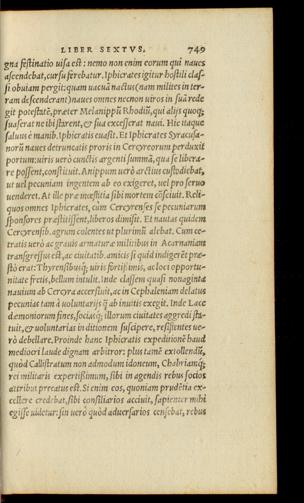 LIBER SEXTVS. 749
gna festinatio uisa est: nemo non enim eorum qui naues
ascendebat, cursu ferebatur. Iphicrates igitur hostili clas-
si obuiam pergit: quam uacuā nactus (nam milites in ter-
ram descenderant) naues omnes necnon uiros in suā rede
git potestatē, præter Melanippū Rhodiū, qui alijs quoq;
suaserat ne ibi starent, & sua excesserat naui. Hic itaque
saluus è manib. Iphicratis euasit. Et Iphicrates Syracusa-
norū naues detruncatis proris in Cercyreorum perduxit
portum: uiris uerò cunctis argenti summā, qua se libera-
re possent, constituit. Anippum uerò arctius custodiebat,
ut uel pecuniam ingentem ab eo exigeret, uel pro seruo
uenderet. At ille præ mœstitia sibi mortem cōsciuit. Reli-
quos omnes Iphicrates, cùm Cercyrenses se pecuniarum
sponsores præstitissent, liberos dimisit. Et nautas quidem
Cercyrensib. agrum colentes ut plurimū alebat. Cum ce-
tratis uerò ac grauis armaturæ militibus in Acarnaniam
transgressus est, ac ciuitatib. amicis si quid indigeret præ-
stò erat: Thyrensibusq́; uiris fortissimis, ac loci opportu-
nitate fretis, bellum intulit. Inde classem quasi nonaginta
nauium ab Cercyra accersiuit, ac in Cephaleniam delatus
pecunias tam à uoluntarijs q̄ ab inuitis exegit. Inde Lace
dæmoniorum fines, sociasq́; illorum ciuitates aggredi sta-
tuit, & uoluntarias in ditionem suscipere, resistentes ue-
rò debellare. Proinde hanc Iphicratis expeditionē haud
mediocri laude dignam arbitror: plus tamē extollendū,
quòd Callistratum non admodum idoneum, Chabriamq́;
rei militaris expertißimum, sibi in agendis rebus socios
attribui precatus est. Si enim eos, quoniam prudētia ex-
cellere credebat, sibi consiliarios acciuit, sapienter mihi
egisse uidetur: sin uerò quòd aduersarios censebat, rebus